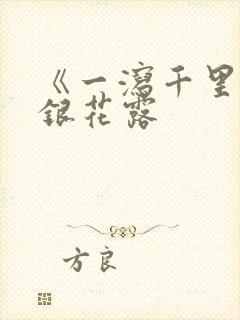 《一瀉千里
銀花露
方良